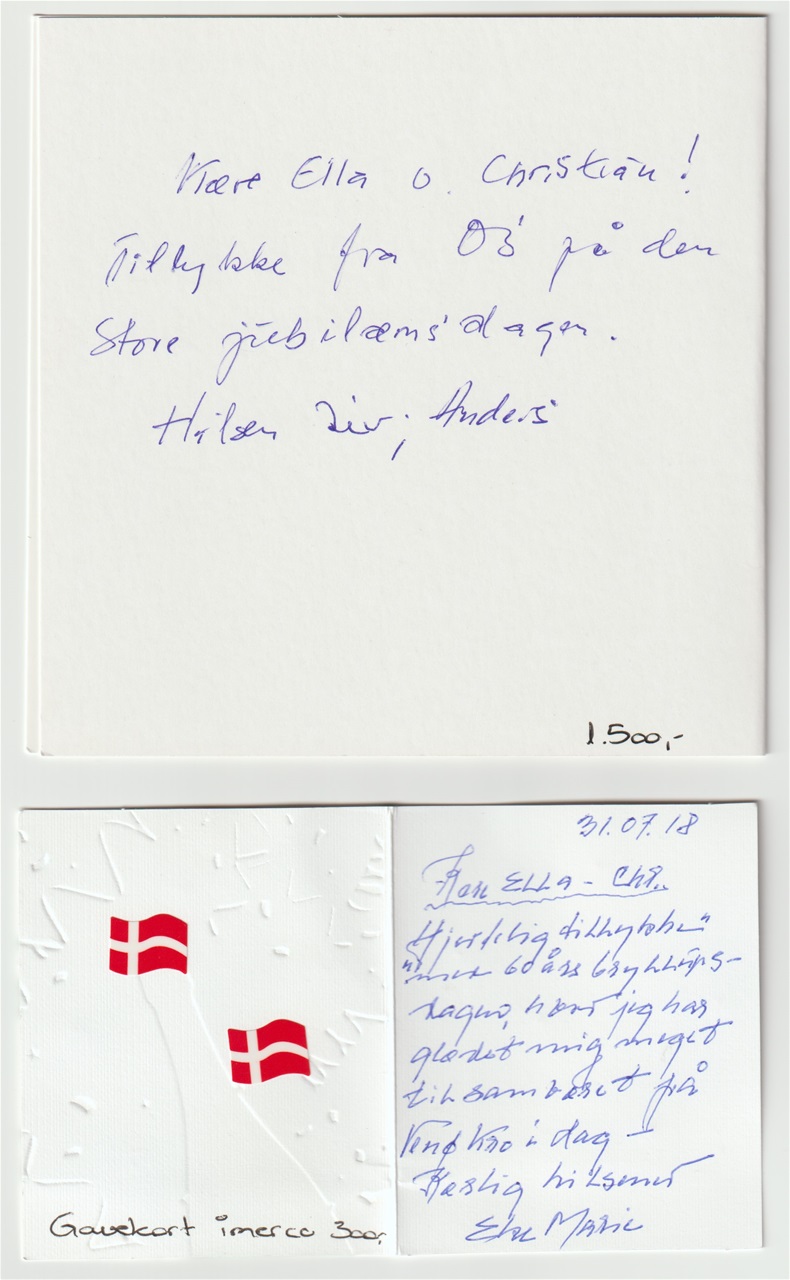 Kære Ella o. Christian!
Tillykke fra OS på den
Store jubilæmsdagen.
Hilsen Anders
1.500,-
31.07.18
Kære ELLA - Chr.
Hjertelig tillykke
med 60 års bryllups-
dagen, hvor jeg har
glædet mig meget
til samværet på
Venø Kro i dag -
Kærlig hilsen
Marie
Gavekort imerco 300,